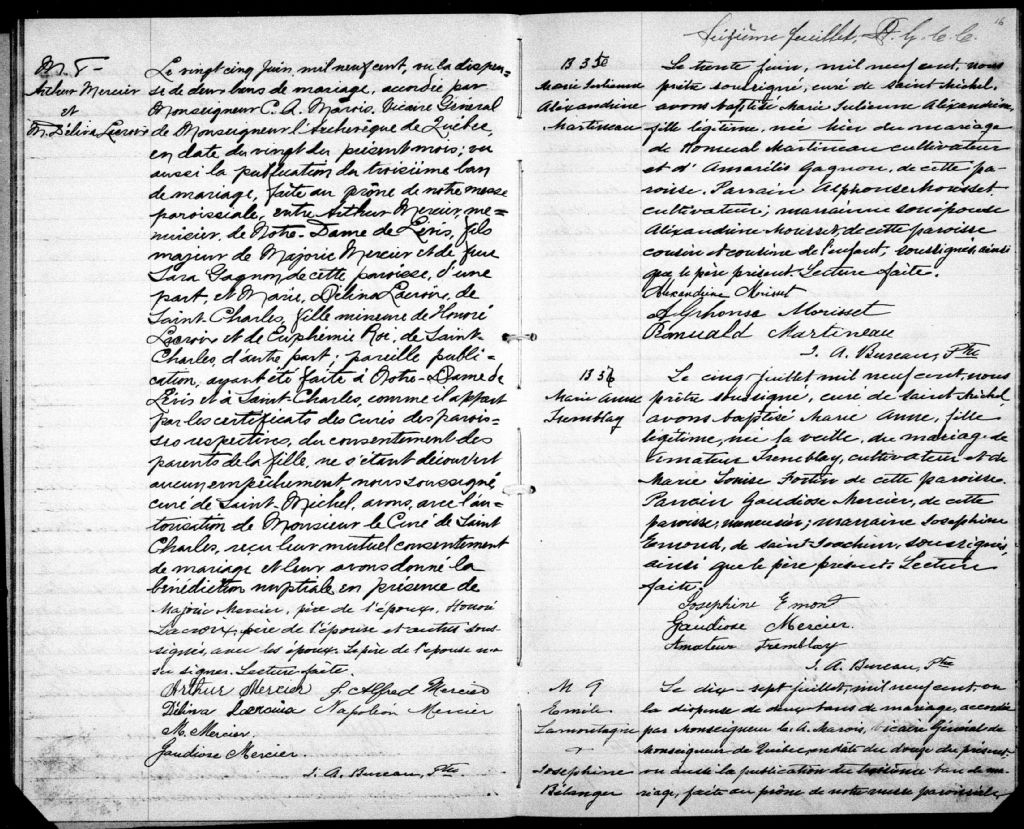 M. 8
Arthur Mercier
et
M. Délina Lacroix
Le vingt cinq juin, mil neuf cent, vu la dispen-
se de deux bans de mariage, accordée par
Monseigneur C. A. Marois, Vicaire Général
de Monseigneur l'Archevêque de Québec,
en date du vingt du présent mois; vu
aussi la publication du troisième ban
de mariage, faite au prône de notre messe
paroissiale, entre Arthur Mercier, me-
nuisier, de Notre-Dame de Lévis, fils
majeur de Majoric Mercier et de feue
Sara Gagnon, de cette paroisse, d'une
part, et Marie, Délina Lacroix, de
Saint-Charles, fille mineure de Honoré
Lacroix et de Euphémie Roi, de Saint-
Charles, d'autre part; pareille publi-
cation, ayant été faite à Notre-Dame de
Lévis et à Saint-Charles, comme il appert
par les certificats des curés des parois-
ses respectives, du consentement des
parents de la fille, ne s'étant découvert
aucun empêchement, nous soussigné,
curé de Saint-Michel, avons, avec l'au-
torisation de Monsieur le Curé de Saint
Charles, reçu leur mutuel consentement
de mariage et leur avons donné la
bénédiction nuptiale en présence de
Majoric Mercier, père de l'époux, Honoré
Lacroix, père de l'épouse et autres sous-
signés, avec les époux. Le père de l'épouse n'a
su signer. Lecture faite.
Arthur Mercier J. Alfred Mercier
Délina Lacroix Napoléon Mercier
M. Mercier.
Gaudiose Mercier.
J. A. Bureau, Ptre
16
Seizième feuillet,
B 35
Marie Julienne
Alexandrine
Martineau
Le trente juin, mil neuf cent, nous
prêtre soussigné, curé de Saint-Michel,
avons baptisé Marie Julienne Alexandrine,
fille légitime, née hier du mariage
de Romuald Martineau cultivateur
et d'Amarilis Gagnon, de cette pa-
roisse. Parrain Alphonse Morisset
cultivateur; marraine son épouse
Alexandrine Morisset, de cette paroisse
cousin et cousine de l'enfant, soussignés, ainsi
que le père présent. Lecture faite.
Alexandrine Morisset
Alphonse Morisset
Romuald Martineau
J. A. Bureau, Ptre
B 36
Marie Anne
Tremblay
Le cinq juillet mil neuf cent, nous
prêtre soussigné, curé de saint Michel
avons baptisé Marie Anne, fille
légitime, née la veille, du mariage de
Amateur Tremblay, cultivateur et de
Marie Louise Fortin de cette paroisse.
Parrain Gaudiose Mercier, de cette
paroisse, menuisier; marraine Joséphine
Emond, de saint-Joachim, soussignés,
ainsi que le père présent. Lecture
faite.
Joséphine Emont
Gaudiose Mercier
Amateur Tremblay
J. A. Bureau, Ptre
M 9
Emile
Lamontagne
+
Joséphine
Bélanger
Le dix-sept juillet, mil neuf cent, vu
la dispense de deux bans de mariage, accordée
par Monseigneur C. A. Marois, Vicaire Général de
Monseigneur de Québec, en date du douze du présent,
vu aussi la publication du troisième ban de ma-
riage, faite au prône de notre messe paroissiale,